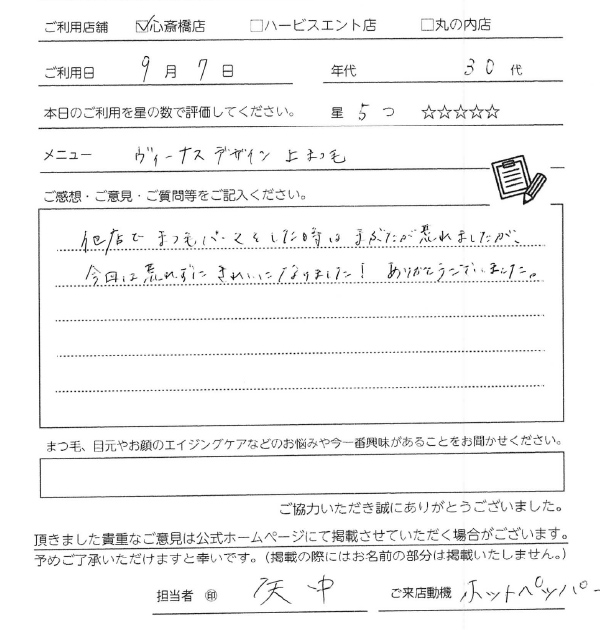 ご利用店舗 ☑心斎橋店 □ハービスエント店 □丸の内店
ご利用日 9 月 7 日 年代 30 代
本日のご利用を星の数で評価してください。 星 5 つ ☆☆☆☆☆
メニュー ヴィーナスデザイン上まつ毛
ご感想・ご意見・ご質問等をご記入ください。
他店でまつ毛パーマをした時はまぶたが荒れましたが、
今回は荒れずにきれいになりました! ありがとうございました。
まつ毛、目元やお顔のエイジングケアなどのお悩みや今一番興味があることをお聞かせください。
ご協力いただき誠にありがとうございました。
頂きました貴重なご意見は公式ホームページにて掲載させていただく場合がございます。
予めご了承いただけますと幸いです。(掲載の際にはお名前の部分は掲載いたしません。)
担当者 ㊞ 中 ご来店動機 ホットペッパー